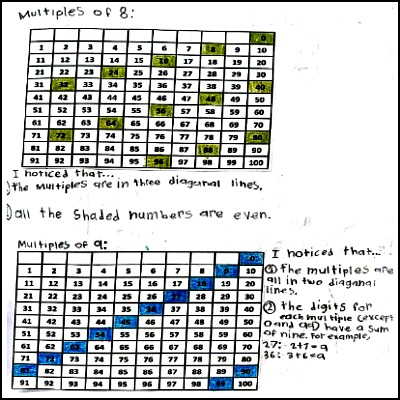 Multiples of 8:
0
1 2 3 4 5 6 7 8 9 10
11 12 13 14 15 16 17 18 19 20
21 22 23 24 25 26 27 28 29 30
31 32 33 34 35 36 37 38 39 40
41 42 43 44 45 46 47 48 49 50
51 52 53 54 55 56 57 58 59 60
61 62 63 64 65 66 67 68 69 70
71 72 73 74 75 76 77 78 79 80
81 82 83 84 85 86 87 88 89 90
91 92 93 94 95 96 97 98 99 100
I noticed that...
)the multiples are in three diaganal lines.
)all the shaded numbers are even.
Multiples of 9:
0
1 2 3 4 5 6 7 8 9 10
11 12 13 14 15 16 17 18 19 20
21 22 23 24 25 26 27 28 29 30
31 32 33 34 35 36 37 38 39 40
41 42 43 44 45 46 47 48 49 50
51 52 53 54 55 56 57 58 59 60
61 62 63 64 65 66 67 68 69 70
71 72 73 74 75 76 77 78 79 80
81 82 83 84 85 86 87 88 89 90
91 92 93 94 95 96 97 98 99 100
I noticed that...
① the multiples are
all in two diaganal
lines.
② the digits for
each multiple (except
0 and 99) have a sum
of nine. For example,
27: 2+7=9
36: 3+6=9